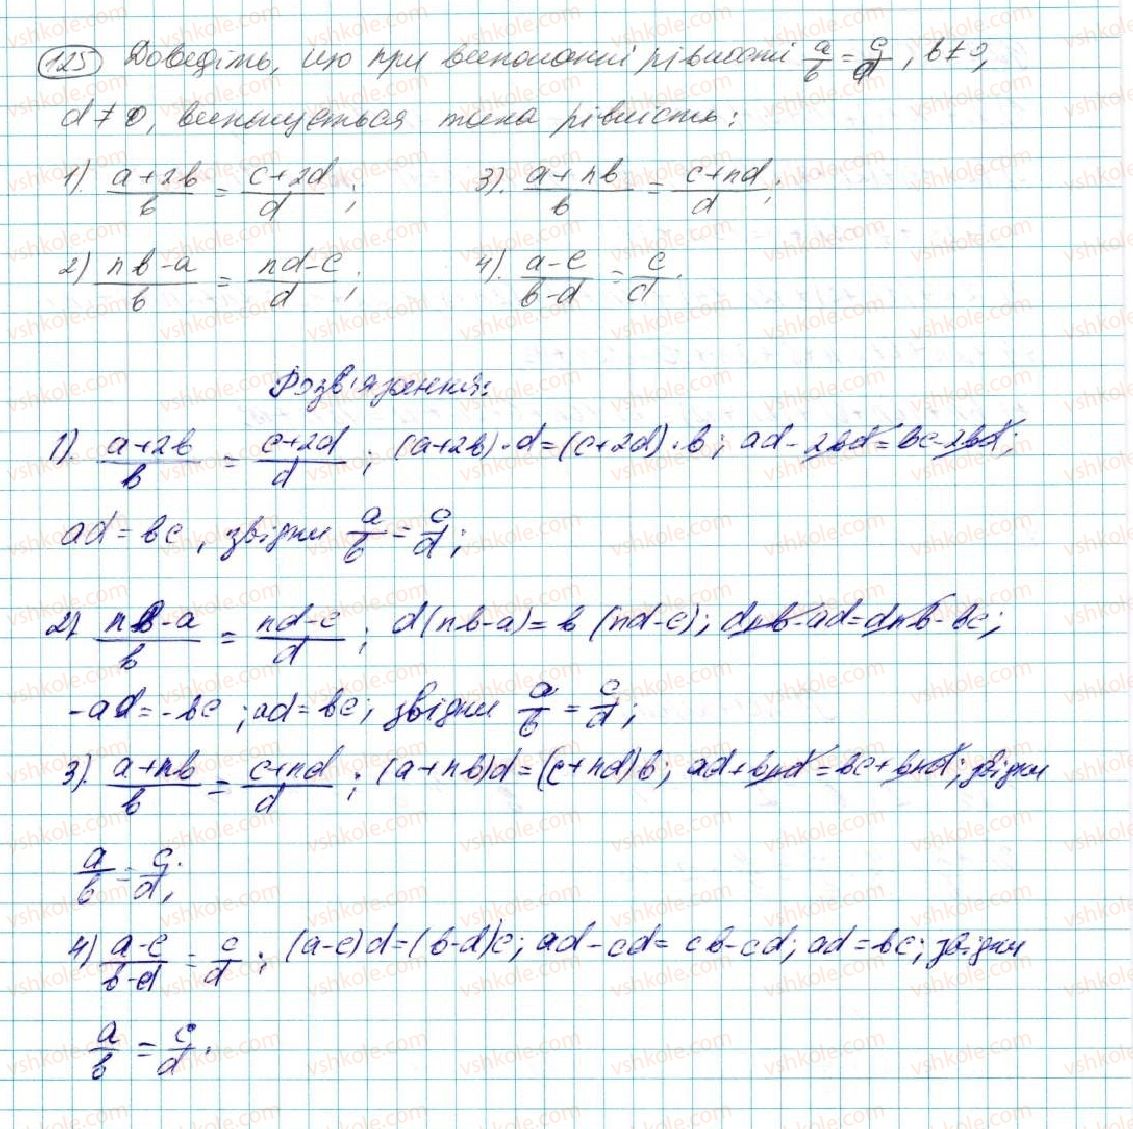 125 Доведіть, що при виконанні рівності a/b = c/d, b ≠ 0,
d ≠ 0, виконується така рівність:
1) (a+2b)/b = (c+2d)/d; 3). (a+nb)/b = (c+nd)/d;
2) (nb-a)/b = (nd-c)/d; 4). (a-c)/(b-d) = c/d.
Розв'язання:
1). (a+2b)/b = (c+2d)/d; (a+2b)·d=(c+2d)·b; ad-2bd=bc-2bd;
ad=bc, звідки a/b = c/d;
2). (nb-a)/b = (nd-c)/d; d(nb-a)=b(nd-c); dnb-ad=dnb-bc;
-ad=-bc; ad=bc; звідки a/b = c/d;
3). (a+nb)/b = (c+nd)/d; (a+nb)d=(c+nd)b; ad+bnd=bc+bnd; звідки
a/b = c/d;
4) (a-c)/(b-d) = c/d; (a-c)d=(b-d)c; ad-cd=cb-cd; ad=bc; звідки
a/b = c/d.
vshkole.com